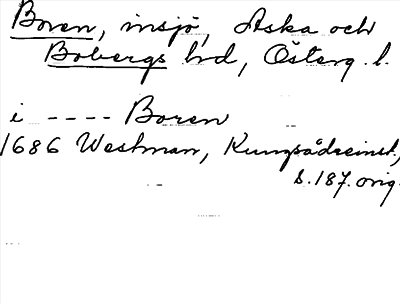 Boren, insjö, Aska och
Bobergs hd, Österg. l.
i ---- Boren
1686 Westman, Kungsådreinst.,
s. 187. orig.